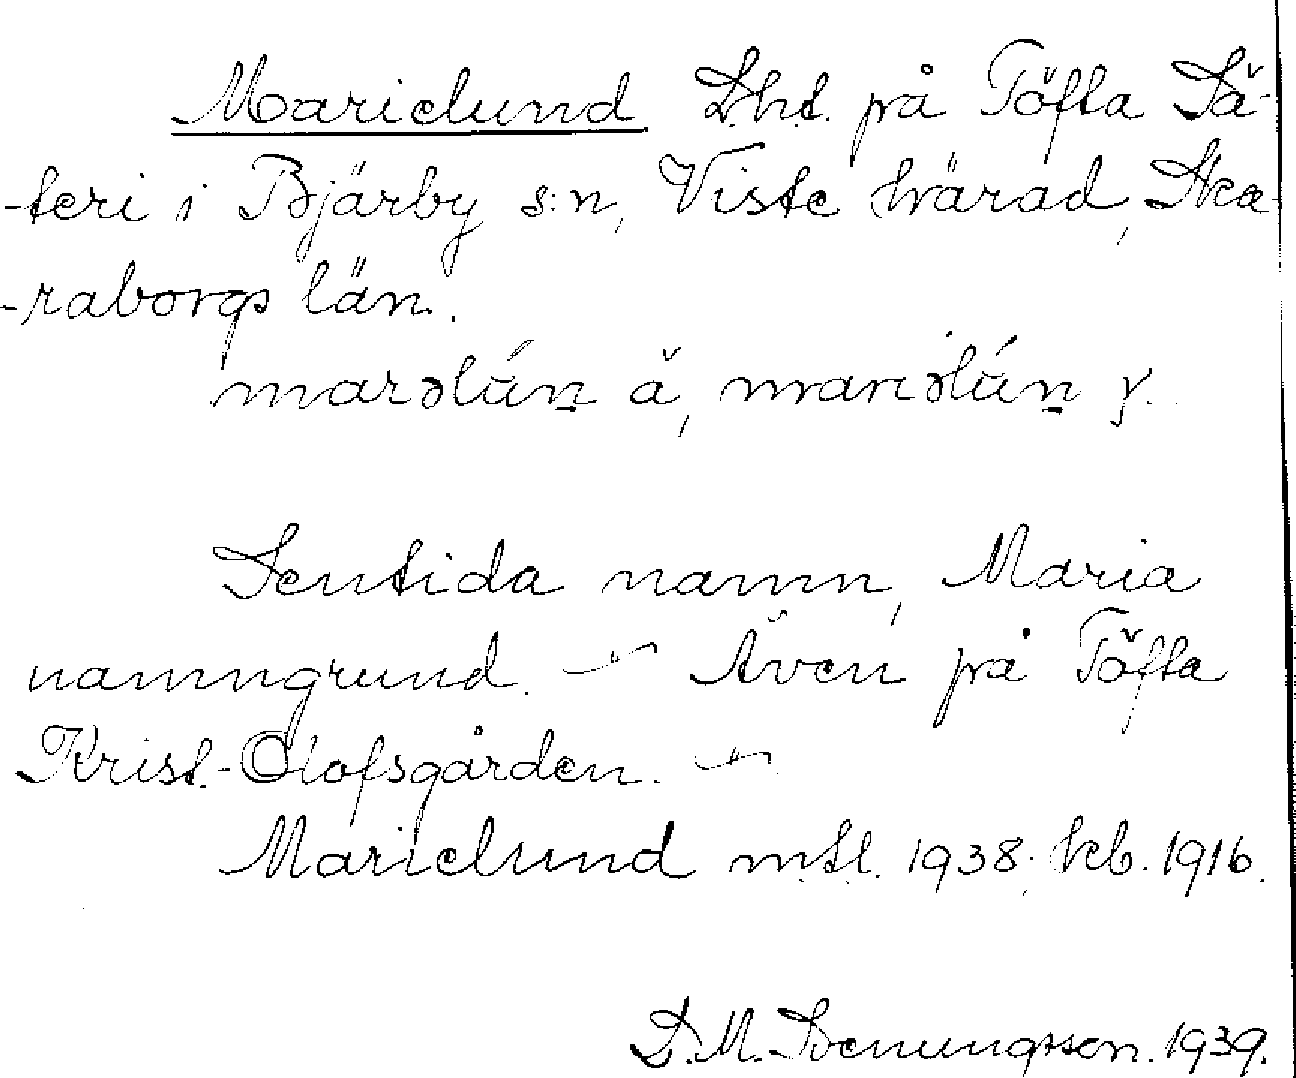 Marielund L.h.t. på Töfta Sä-
-teri i Bjärby s:n, Viste härad, Ska-
-raborgs län.
marəlúṉ ä, mariəlúṉ y.
Sentida namn, Maria
namngrund. — Även på Töfta
Krist.-Olofsgården. —
Marielund mtl. 1938; kb. 1916.
D. M. Svenungsson. 1939.